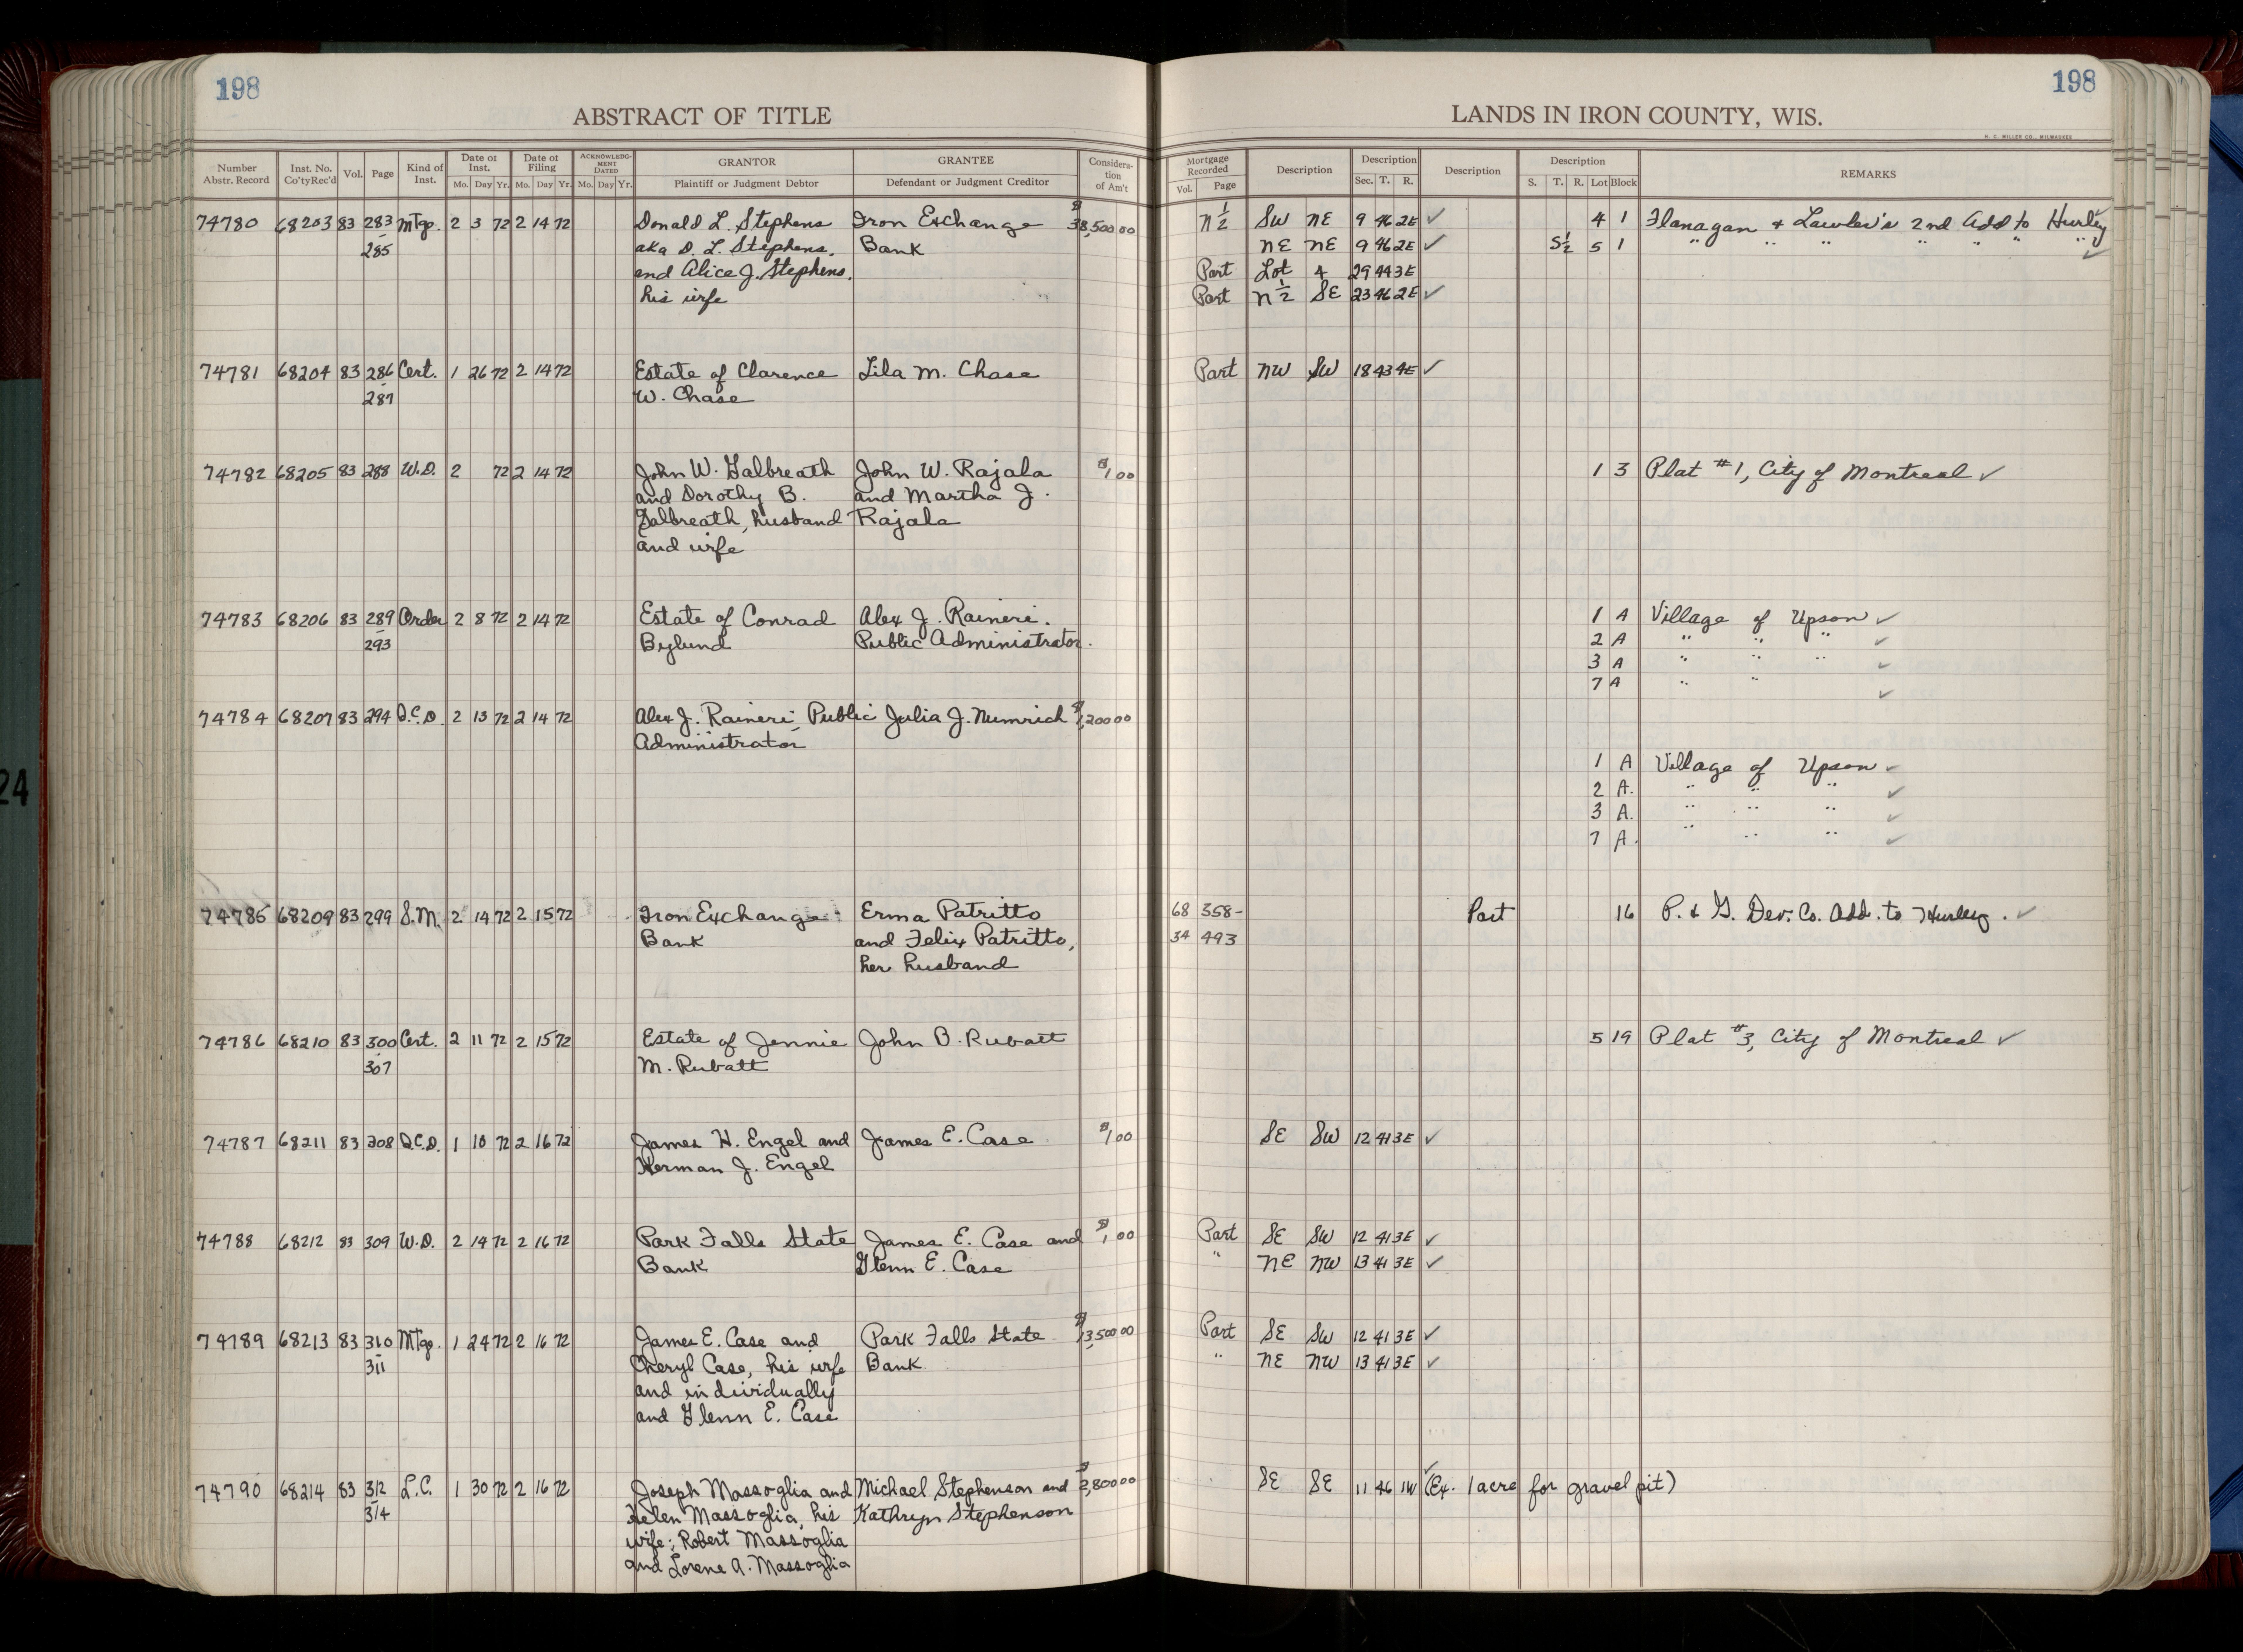 198
198
ABSTRACT OF TITLE
LANDS IN IRON COUNTY, WIS.
H. C. MILLER CO., MILWAUKEE
Number Abstr. Record Inst. No. Co'ty Rec'd Vol. Page Kind of Inst. Date of Inst. Mo. Day Yr. Date of Filing Mo. Day Yr. ACKNOWLEDGMENT DATED Mo. Day Yr. GRANTOR Plaintiff or Judgment Debtor GRANTEE Defendant or Judgment Creditor Consideration of Am't Mortgage Recorded Vol. Page Description Description Sec. T. R. Description Description S. T. R. Lot Block REMARKS
74780 68203 83 283 Mtg. 2 3 72 2 14 72 Donald L. Stephens Iron Exchange $38,500 00 N½ SW NE 9 46 2E ✓ 4 1 Flanagan & Lawler's 2nd Add to Hurley ✓
- 285 aka D. L. Stephens, Bank NE NE 9 46 2E ✓ S½ 5 1 " " " " " " ✓
and Alice J. Stephens, Part Lot 4 29 44 3E
his wife Part N½ SE 23 46 2E ✓
74781 68204 83 286 Cert. 1 26 72 2 14 72 Estate of Clarence Lila M. Chase Part NW SW 18 43 4E ✓
- 287 W. Chase
74782 68205 83 288 W.D. 2 72 2 14 72 John W. Galbreath John W. Rajala $1 00 1 3 Plat #1, City of Montreal ✓
and Dorothy B. and Martha J.
Galbreath, husband Rajala
and wife
74783 68206 83 289 Order 2 8 72 2 14 72 Estate of Conrad Alex J. Raineri. 1 A Village of Upson ✓
- 293 Bylund Public Administrator. 2 A " " " ✓
3 A " " " ✓
7 A " " ✓
74784 68207 83 294 Q.C.D. 2 13 72 2 14 72 Alex J. Raineri, Public Julia J. Numrich $1,200 00
Administrator
1 A Village of Upson ✓
2 A. " " " ✓
3 A. " " " ✓
7 A. " " " ✓
74785 68209 83 299 S.M. 2 14 72 2 15 72 Iron Exchange Erma Patritto 68 358- Part 16 P. & G. Dev. Co. Add. to Hurley. ✓
Bank and Felix Patritto, 34 493
her husband
74786 68210 83 300 Cert. 2 11 72 2 15 72 Estate of Jennie John B. Rubatt 5 19 Plat #3, City of Montreal ✓
- 307 M. Rubatt
74787 68211 83 308 Q.C.D. 1 10 72 2 16 72 James H. Engel and James E. Case $1 00 SE SW 12 41 3E ✓
Herman J. Engel
74788 68212 83 309 W.D. 2 14 72 2 16 72 Park Falls State James E. Case and $1 00 Part SE SW 12 41 3E ✓
Bank Glenn E. Case " NE NW 13 41 3E ✓
74789 68213 83 310 Mtg. 1 24 72 2 16 72 James E. Case and Park Falls State $13,500 00 Part SE SW 12 41 3E ✓
- 311 Cheryl Case, his wife Bank. " NE NW 13 41 3E ✓
and individually
and Glenn E. Case
74790 68214 83 312 L.C. 1 30 72 2 16 72 Joseph Massoglia and Michael Stephenson and $2,800 00 SE SE 11 46 1W ✓ (Ex. 1 acre for gravel pit)
- 314 Helen Massoglia, his Kathryn Stephenson
wife; Robert Massoglia
and Lorene A. Massoglia
24